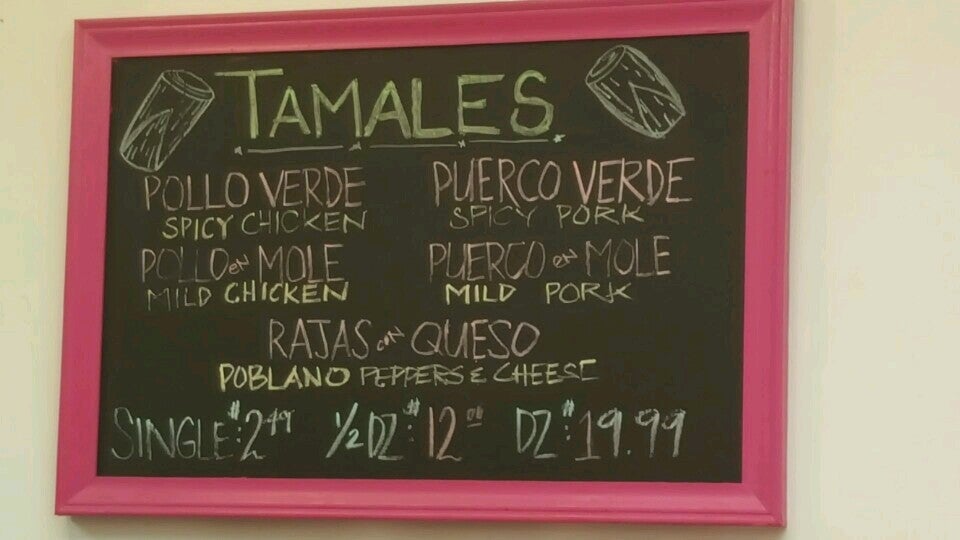 TAMALES
POLLO VERDE
SPICY CHICKEN
PUERCO VERDE
SPICY PORK
POLLO en MOLE
MILD CHICKEN
PUERCO en MOLE
MILD PORK
RAJAS con QUESO
POBLANO PEPPERS & CHEESE
SINGLE: $2.49 ½ DZ: $12.00 DZ: $19.99